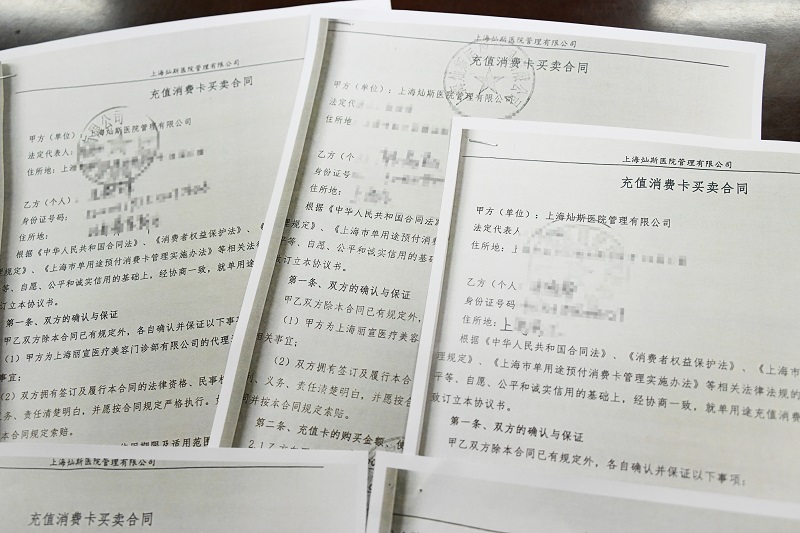 上海灿斯医院管理有限公司
充值消费卡买卖合同
甲方（单位）：上海灿斯医院管理有限公司
法定代表人：
住所地：上海
乙方（个人）：
身份证号码：
住所地：
根据《中华人民共和国合同法》、《消费者权益保护法》、
理规定》、《上海市单用途预付消费卡管理实施办法》等相关法律
等、自愿、公平和诚实信用的基础上，经协商一致，就单用途
订立本协议书。
第一条、双方的确认与保证
甲乙双方除本合同已有规定外，各自确认并保证以下事项
（1）甲方为上海丽宣医疗美容门诊部有限公司的代理
事宜；
（2）双方拥有签订及履行本合同的法律资格、民事权
义务、责任清楚明白，并愿按合同规定严格执行。
本合同规定索赔。
期限及适用范围
上海灿斯医院管理有限公司
充值消费卡买卖合同
甲方（单位）：上海灿斯医院管理有限公司
法定代
住所地
乙方（个
身份证号
住所地：
根据《中华人民共和国合同法》
理规定》、《上海市单用途预付消费
平等、自愿、公平和诚实信用的
致订立本协议书。
第一条、双方的确认与保证
甲乙双方除本合同已有规定外，
（1）甲方为上海丽宣医疗美
相关事宜；
（2）双方拥有签订及履行本
、义务、责任清楚明白，并愿按
并按本合同规定索赔。
第二条、充值卡的购买金额、使
2.1乙方
上海灿斯医院管理有限公司
充值消费卡买卖合同
甲方（单位）：上海灿斯医院管理有限公司
法定代表人
住所地：上
乙方（个人
身份证号码
住所地：上
根据《中华人民共和国合同法》、《消费者权益保护法》、《上海市
理规定》、《上海市单用途预付消费卡管理实施办法》等相关法律法规的
平等、自愿、公平和诚实信用的基础上，经协商一致，就单用途充值消费
致订立本协议书。
第一条、双方的确认与保证
甲乙双方除本合同已有规定外，各自确认并保证以下事项：
上海灿斯医院管理有限公司
充值消费卡买卖合同